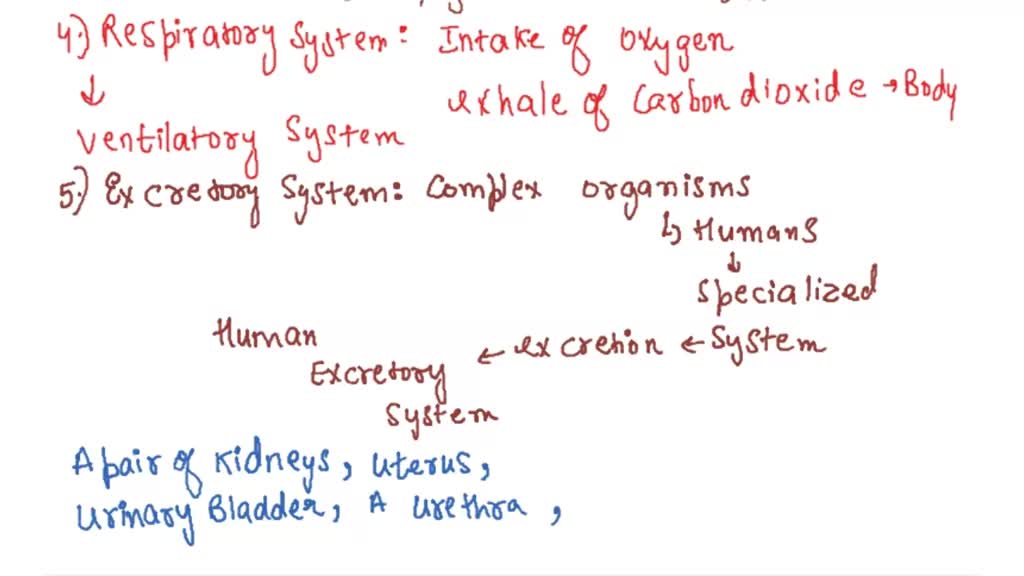 4.) Respiratory System: Intake of oxygen
↓ exhale of Carbon dioxide → Body
Ventilatory System
5.) Excretory System: Complex organisms
↳ Humans
↓
Specialized
Human ← excretion ← System
Excretory
System
A pair of Kidneys, Uterus,
Urinary Bladder, A Urethra,